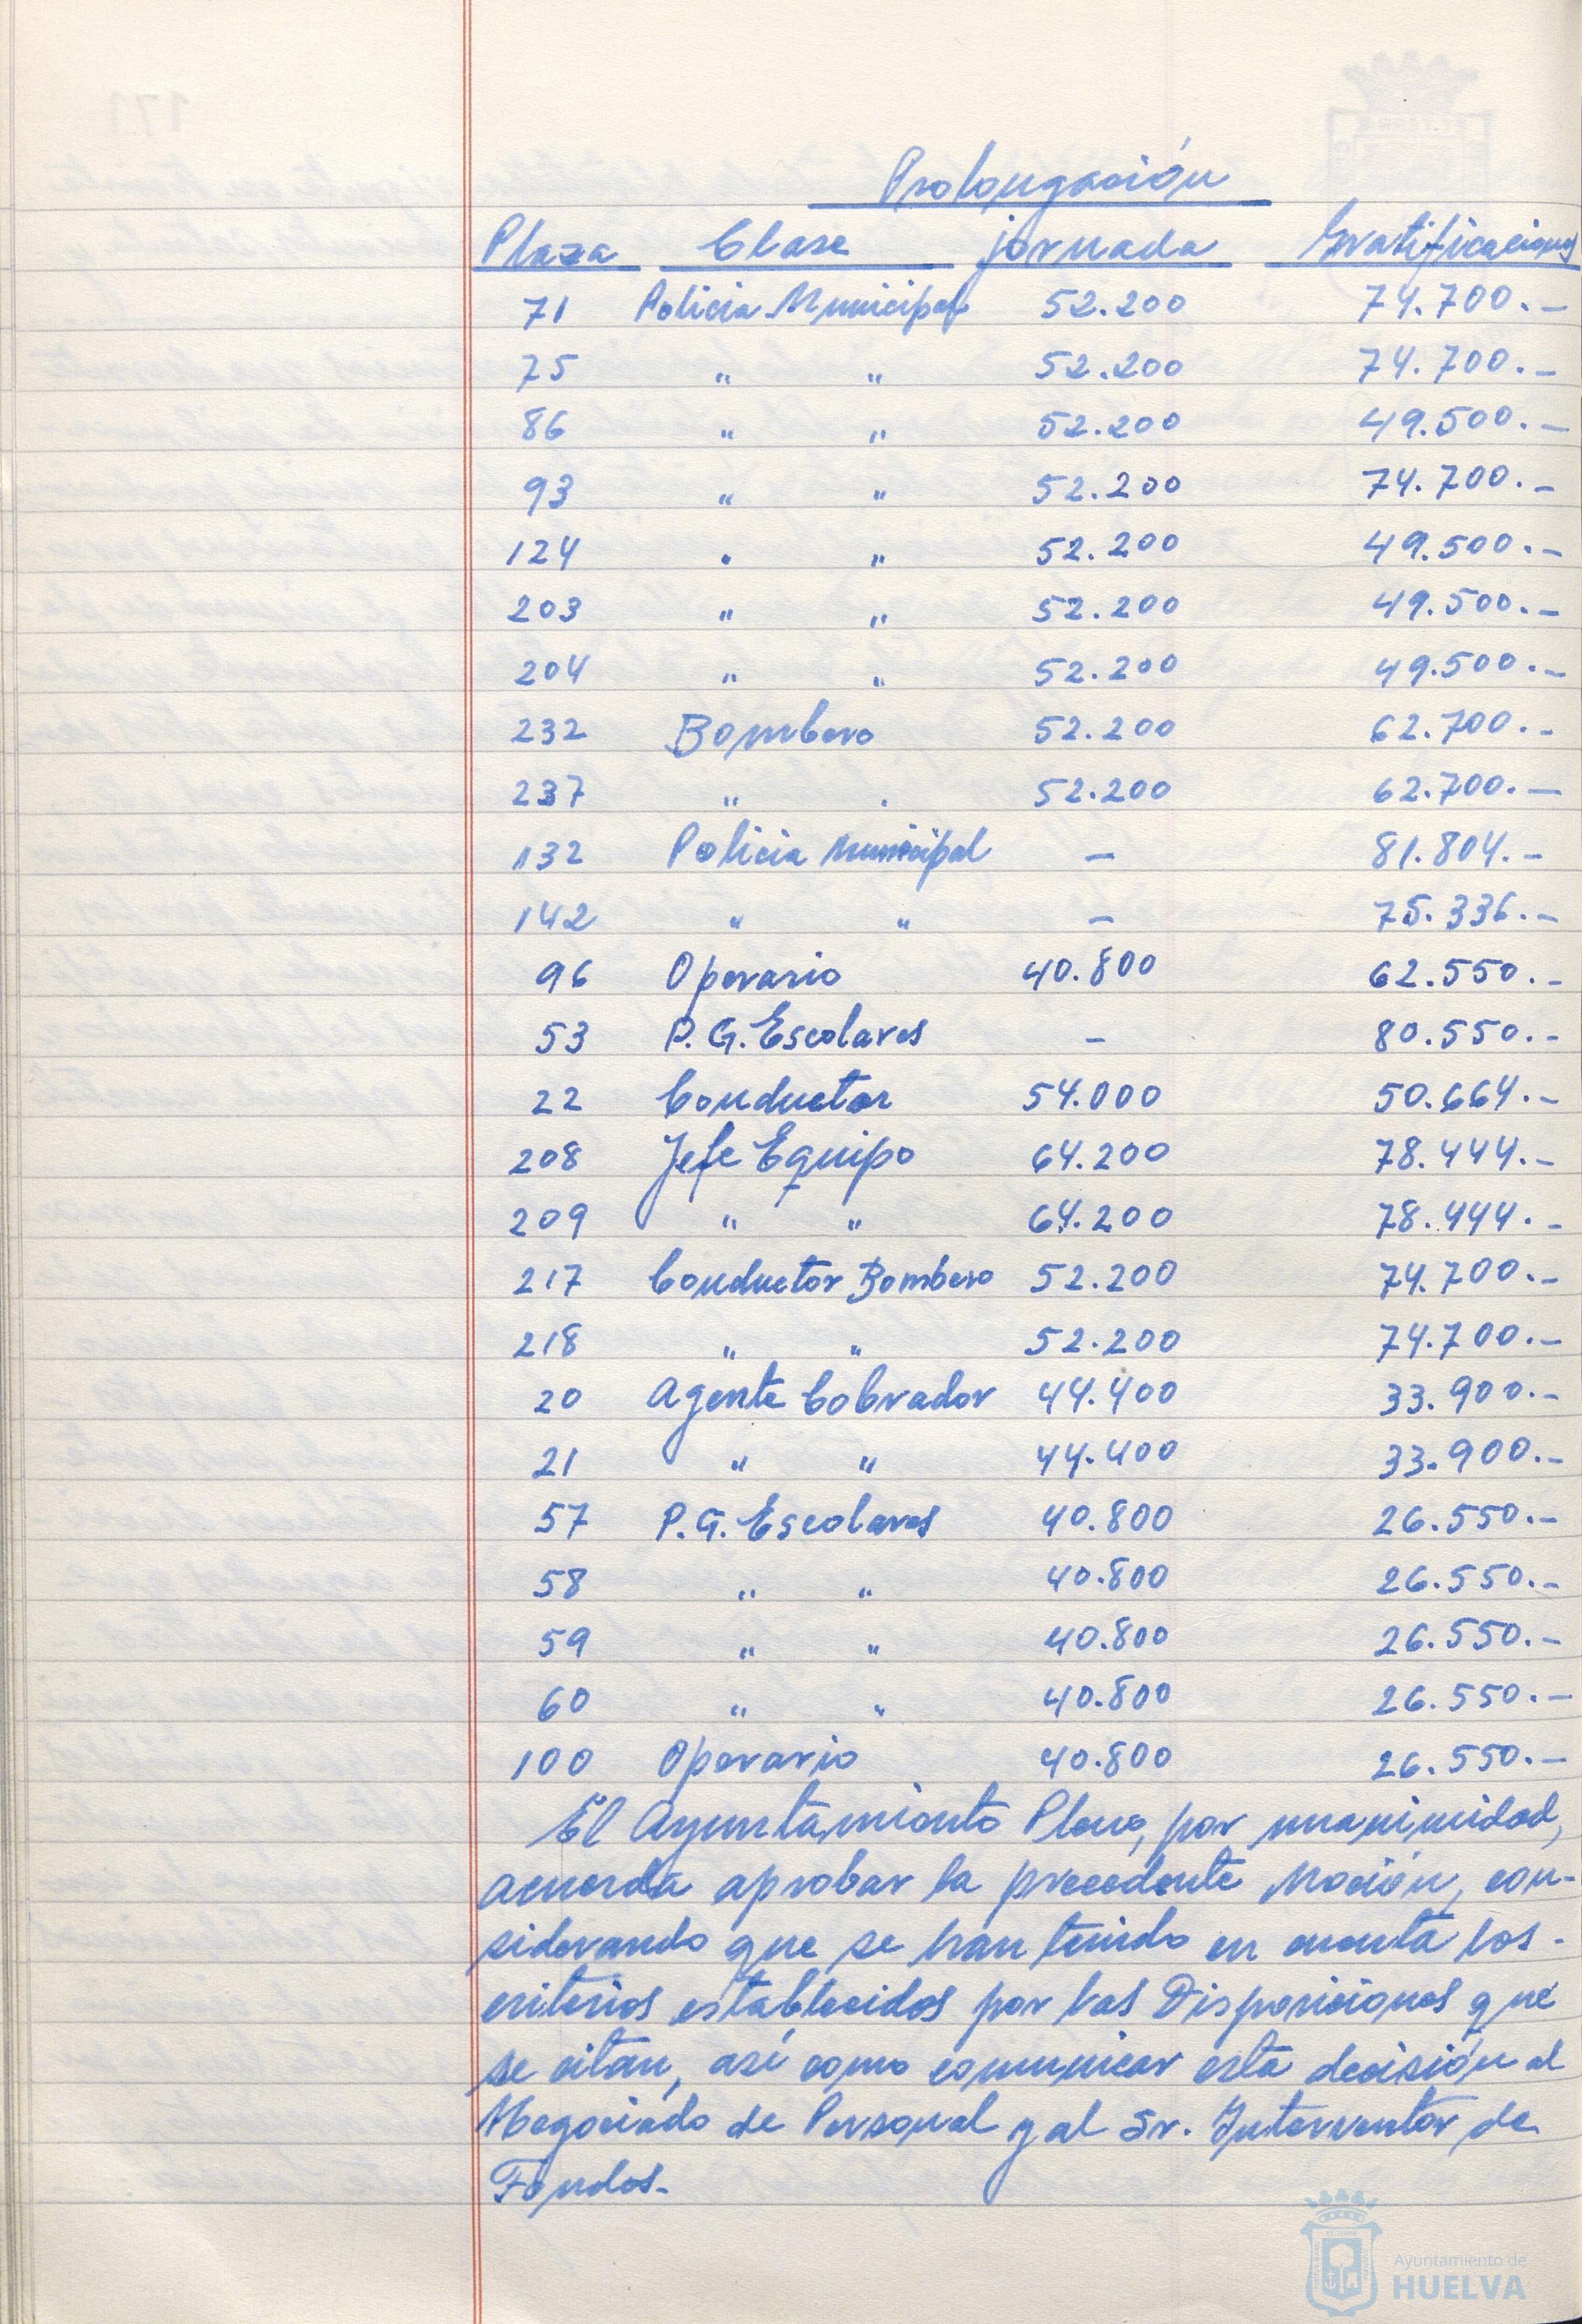 Prolongación
Plaza Clase jornada Gratificaciones
71 Policia Municipal 52.200 74.700.-
75 " " 52.200 74.700.-
86 " " 52.200 49.500.-
93 " " 52.200 74.700.-
124 " " 52.200 49.500.-
203 " " 52.200 49.500.-
204 " " 52.200 49.500.-
232 Bombero 52.200 62.700.-
237 " 52.200 62.700.-
132 Policia Municipal - 81.804.-
142 " " - 75.336.-
96 Operario 40.800 62.550.-
53 P.G. Escolares - 80.550.-
22 Conductor 54.000 50.664.-
208 Jefe Equipo 64.200 78.444.-
209 " " 64.200 78.444.-
217 Conductor Bombero 52.200 74.700.-
218 " " 52.200 74.700.-
20 Agente Cobrador 44.400 33.900.-
21 " " 44.400 33.900.-
57 P.G. Escolares 40.800 26.550.-
58 " " 40.800 26.550.-
59 " " 40.800 26.550.-
60 " " 40.800 26.550.-
100 Operario 40.800 26.550.-
El Ayuntamiento Pleno, por unanimidad,
acuerda aprobar la precedente Moción, con-
siderando que se han tenido en cuenta los
criterios establecidos por las Disposiciones que
se citan, así como comunicar esta decisión al
Negociado de Personal y al Sr. Interventor de
Fondos.-
Ayuntamiento de
HUELVA